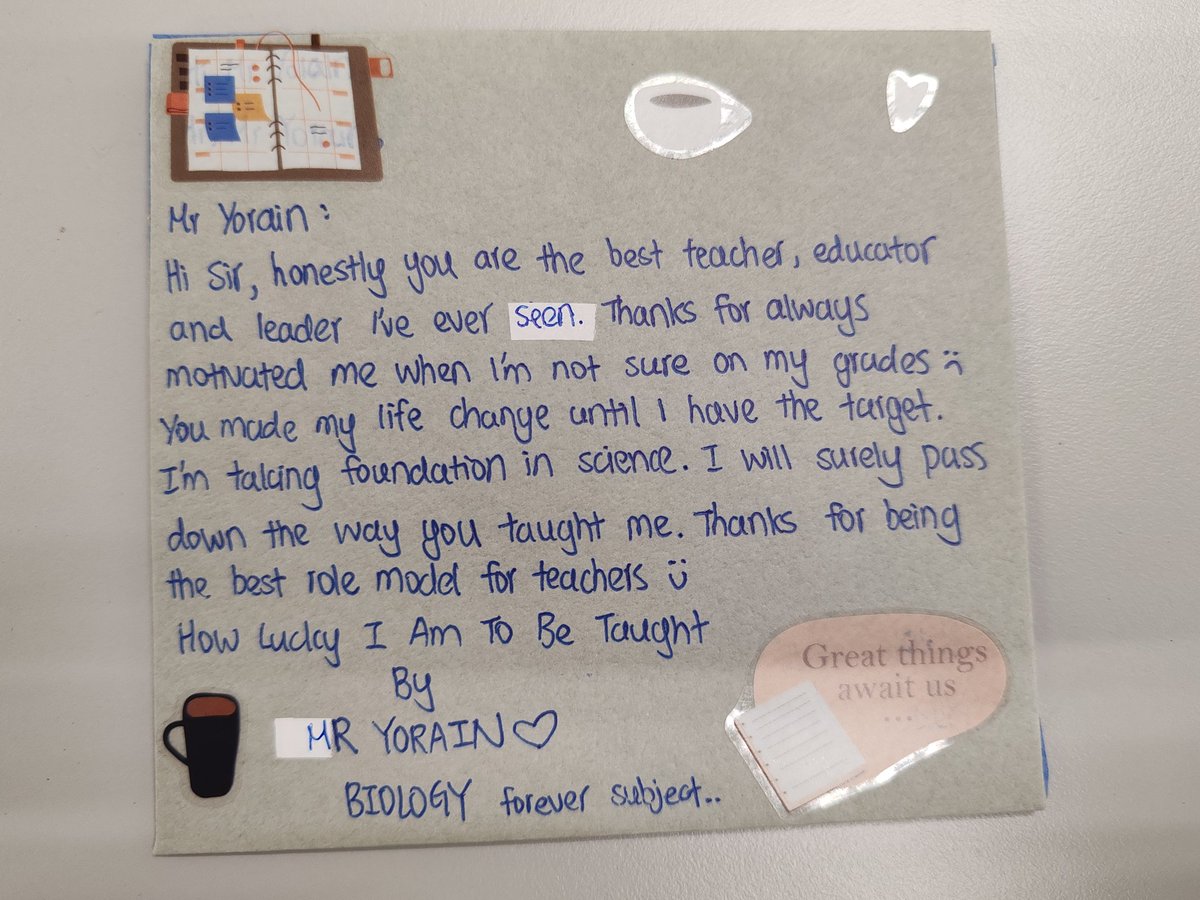 Mr Yorain :
Hi Sir, honestly you are the best teacher, educator
and leader I've ever seen. Thanks for always
motivated me when I'm not sure on my grades :(
You made my life change until I have the target.
I'm taking foundation in science. I will surely pass
down the way you taught me. Thanks for being
the best role model for teachers :)
How Lucky I Am To Be Taught
By
MR YORAIN♡
BIOLOGY forever subject..
Great things
await us
...